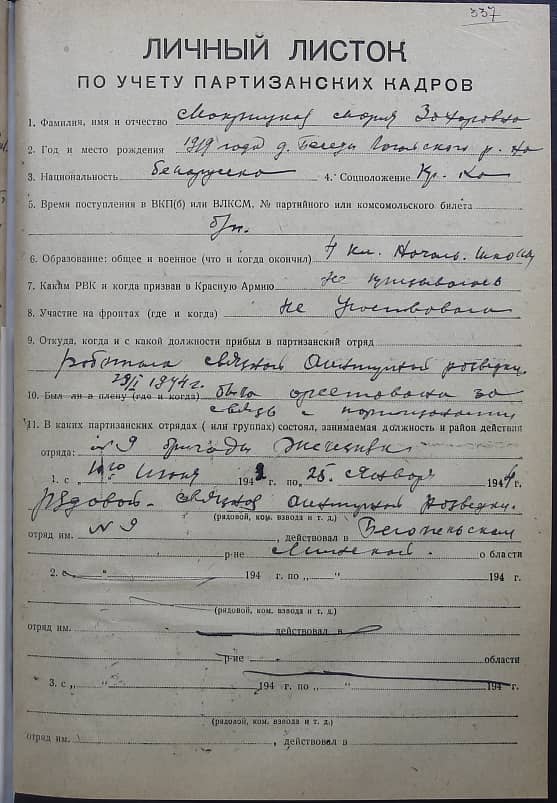 337
ЛИЧНЫЙ ЛИСТОК
ПО УЧЕТУ ПАРТИЗАНСКИХ КАДРОВ
1. Фамилия, имя и отчество Мокрицкая Мария Захаровна
2. Год и место рождения 1919 года д.
3. Национальность Беларуска 4. Соцположение Кр. Ка
5. Время поступления в ВКП(б) или ВЛКСМ, № партийного или комсомольского билета
б/п.
6. Образование: общее и военное (что и когда окончил) 4 кл. Началь. школы
7. Каким РВК и когда призван в Красную Армию не призывалась
8. Участие на фронтах (где и когда) не участвовала
9. Откуда, когда и с какой должности прибыл в партизанский отряд
работала связной агентурной разведки.
1944 г.
10. Был ли в плену (где и когда) была арестована за
связь с партизанами
11. В каких партизанских отрядах ( или группах) состоял, занимаемая должность и район действий
отряда: № 9 бригады Железняк
1. с 10го июня 1942 г. по „ 25 января 1944 г.
Рядовой - связной агентурной разведки.
(рядовой, ком. взвода и т. д.)
отряд им. № 9 , действовал в Бегомльском
р-не Минской о области
2. „ “ 194 г. по „ “ 194 г.
(рядовой, ком. взвода и т. д.)
отряд им. действовал в
р-не области
3. с „ “ 194 г. по „ “ 194 г.
(рядовой, ком. взвода и т. д.)
отряд им. , действовал в